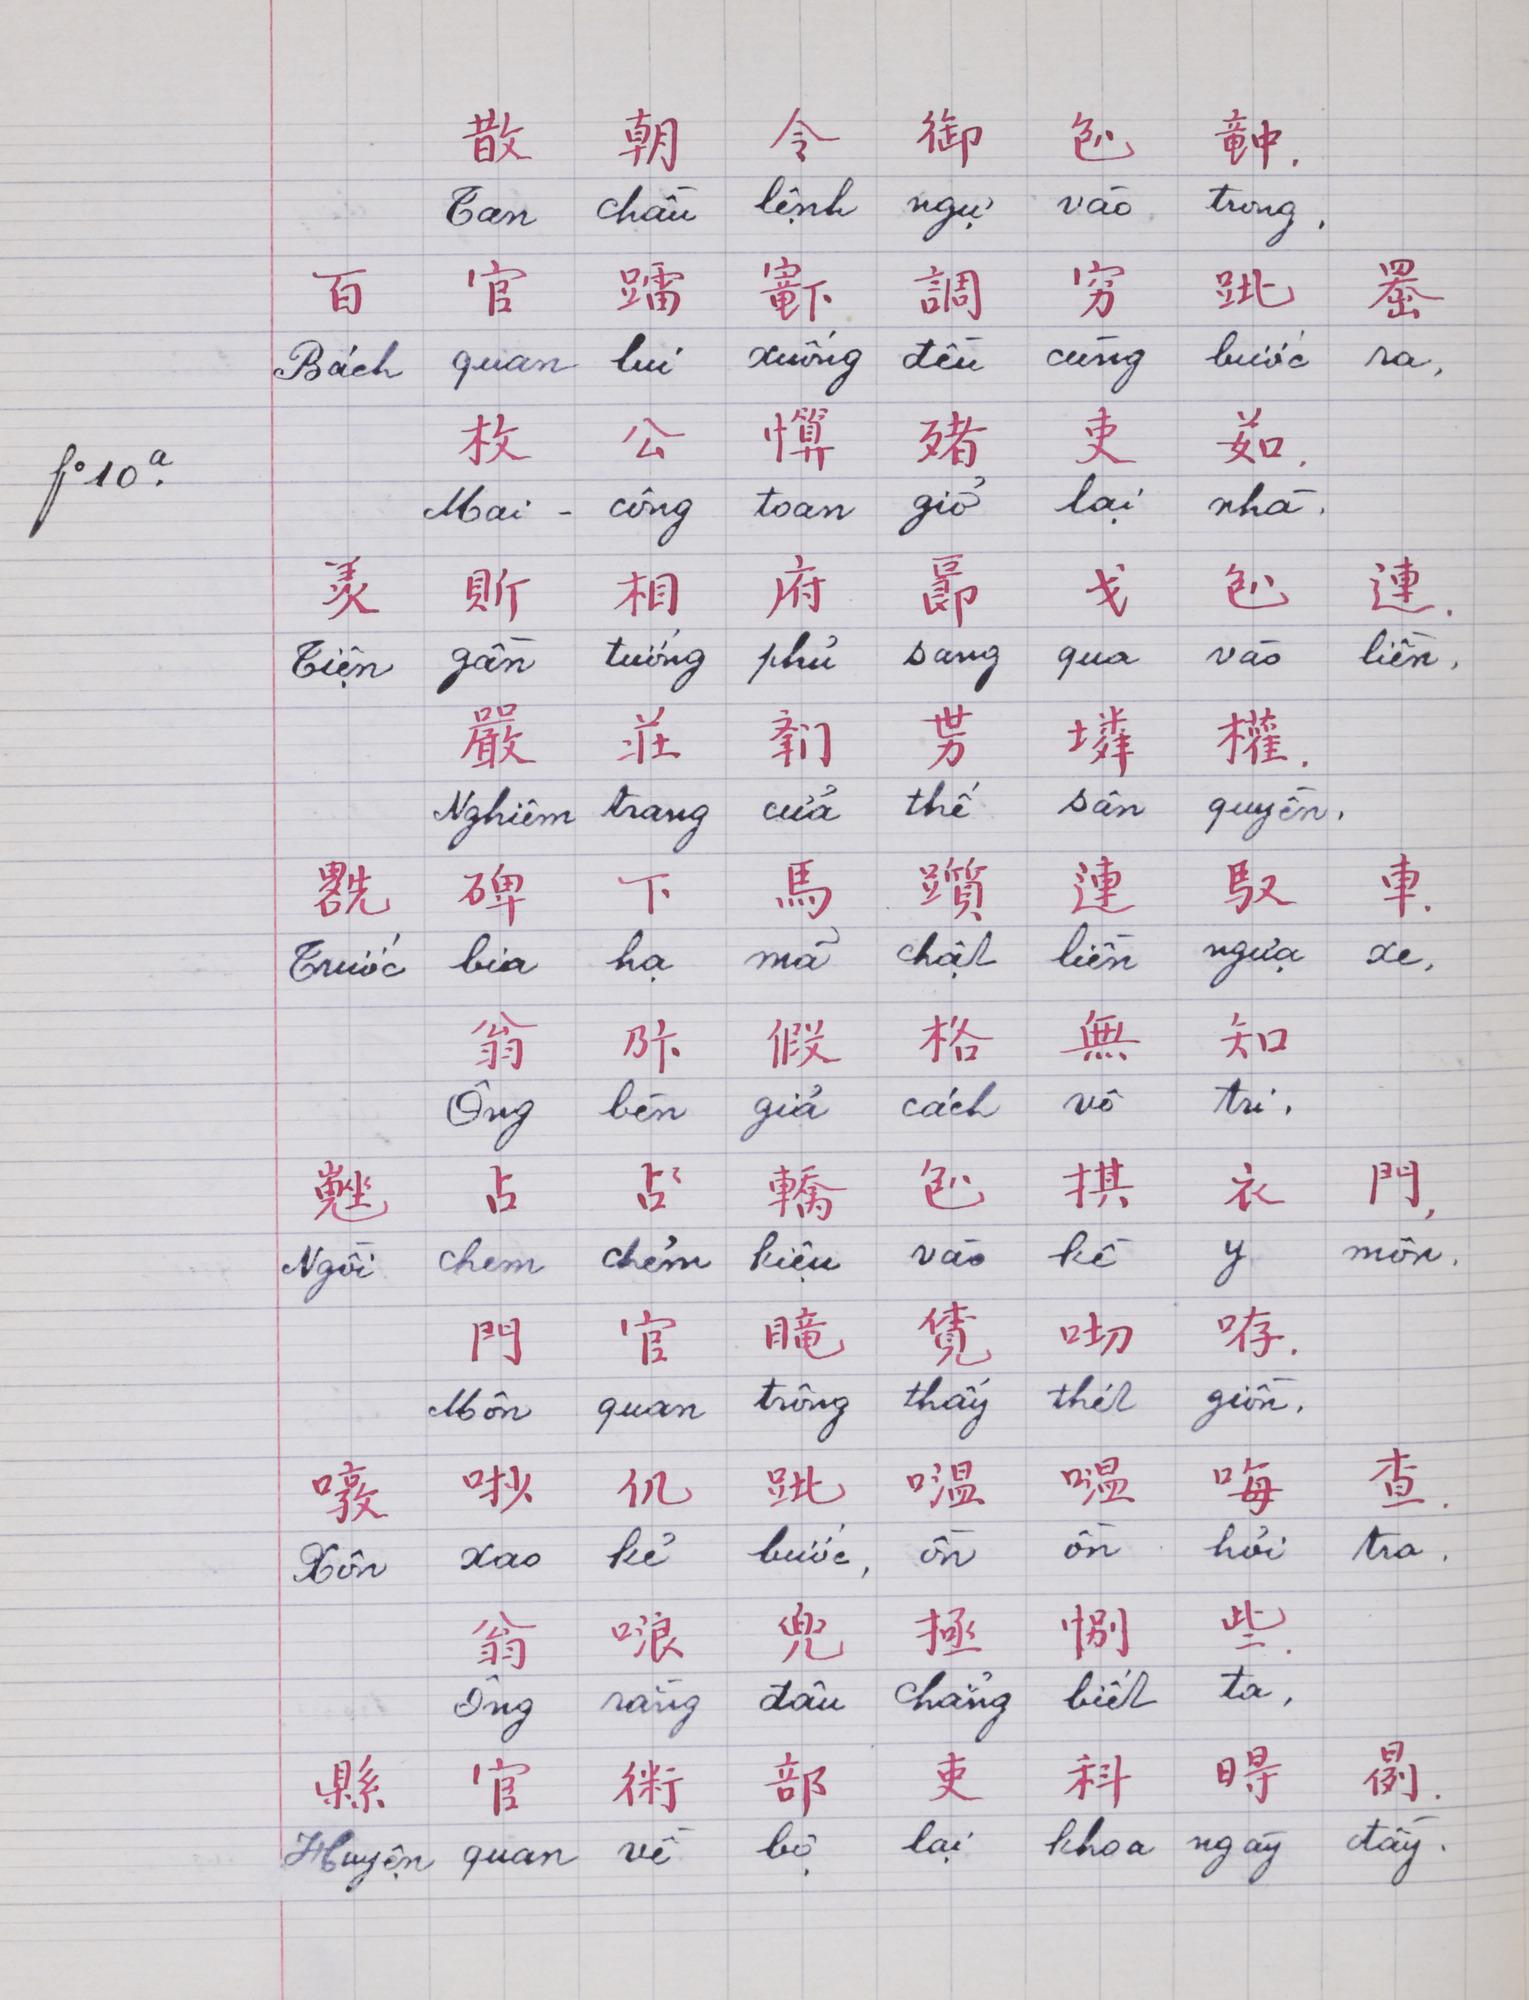 散 朝 令 御 𠓨 𥪝.
Tan chầu lệnh ngự vào trong,
百 官 蹓 𡬈 調 窮 𨀈 𦋦
Bách quan lui xuống đều cùng bước ra,
枚 公 𢠣 𣦍 吏 茹.
Mai - công toan giở lại nhà.
羡 𧵆 相 府 𨖅 戈 𠓨 連.
Tiện gần tướng phủ sang qua vào liền,
嚴 莊 𨷶 势 㙩 權.
Nghiêm trang cửa thế sân quyền,
𠓀 碑 下 馬 躓 連 馭 車.
Trước bia hạ mã chật liền ngựa xe,
翁 𠀧 假 格 無 知
Ông bèn giả cách vô tri,
𡎥 占 占 轎 𠓨 掑 衣 門,
Ngồi chem chẻm kiệu vào kề y môn,
門 官 𥊚 𧡊 𠯦 㖹.
Môn quan trông thấy thét giồn,
㗼 吵 仉 𨀈 嗢 嗢 𠳨 查.
Xôn xao kẻ bước, ồn ồn hỏi tra,
翁 哴 兜 拯 𢢆 些.
Ông rằng đâu chẳng biết ta,
縣 官 衛 部 吏 科 𣈜 𣈗.
Huyện quan về bộ lại khoa ngày đầy.
fº10ª.